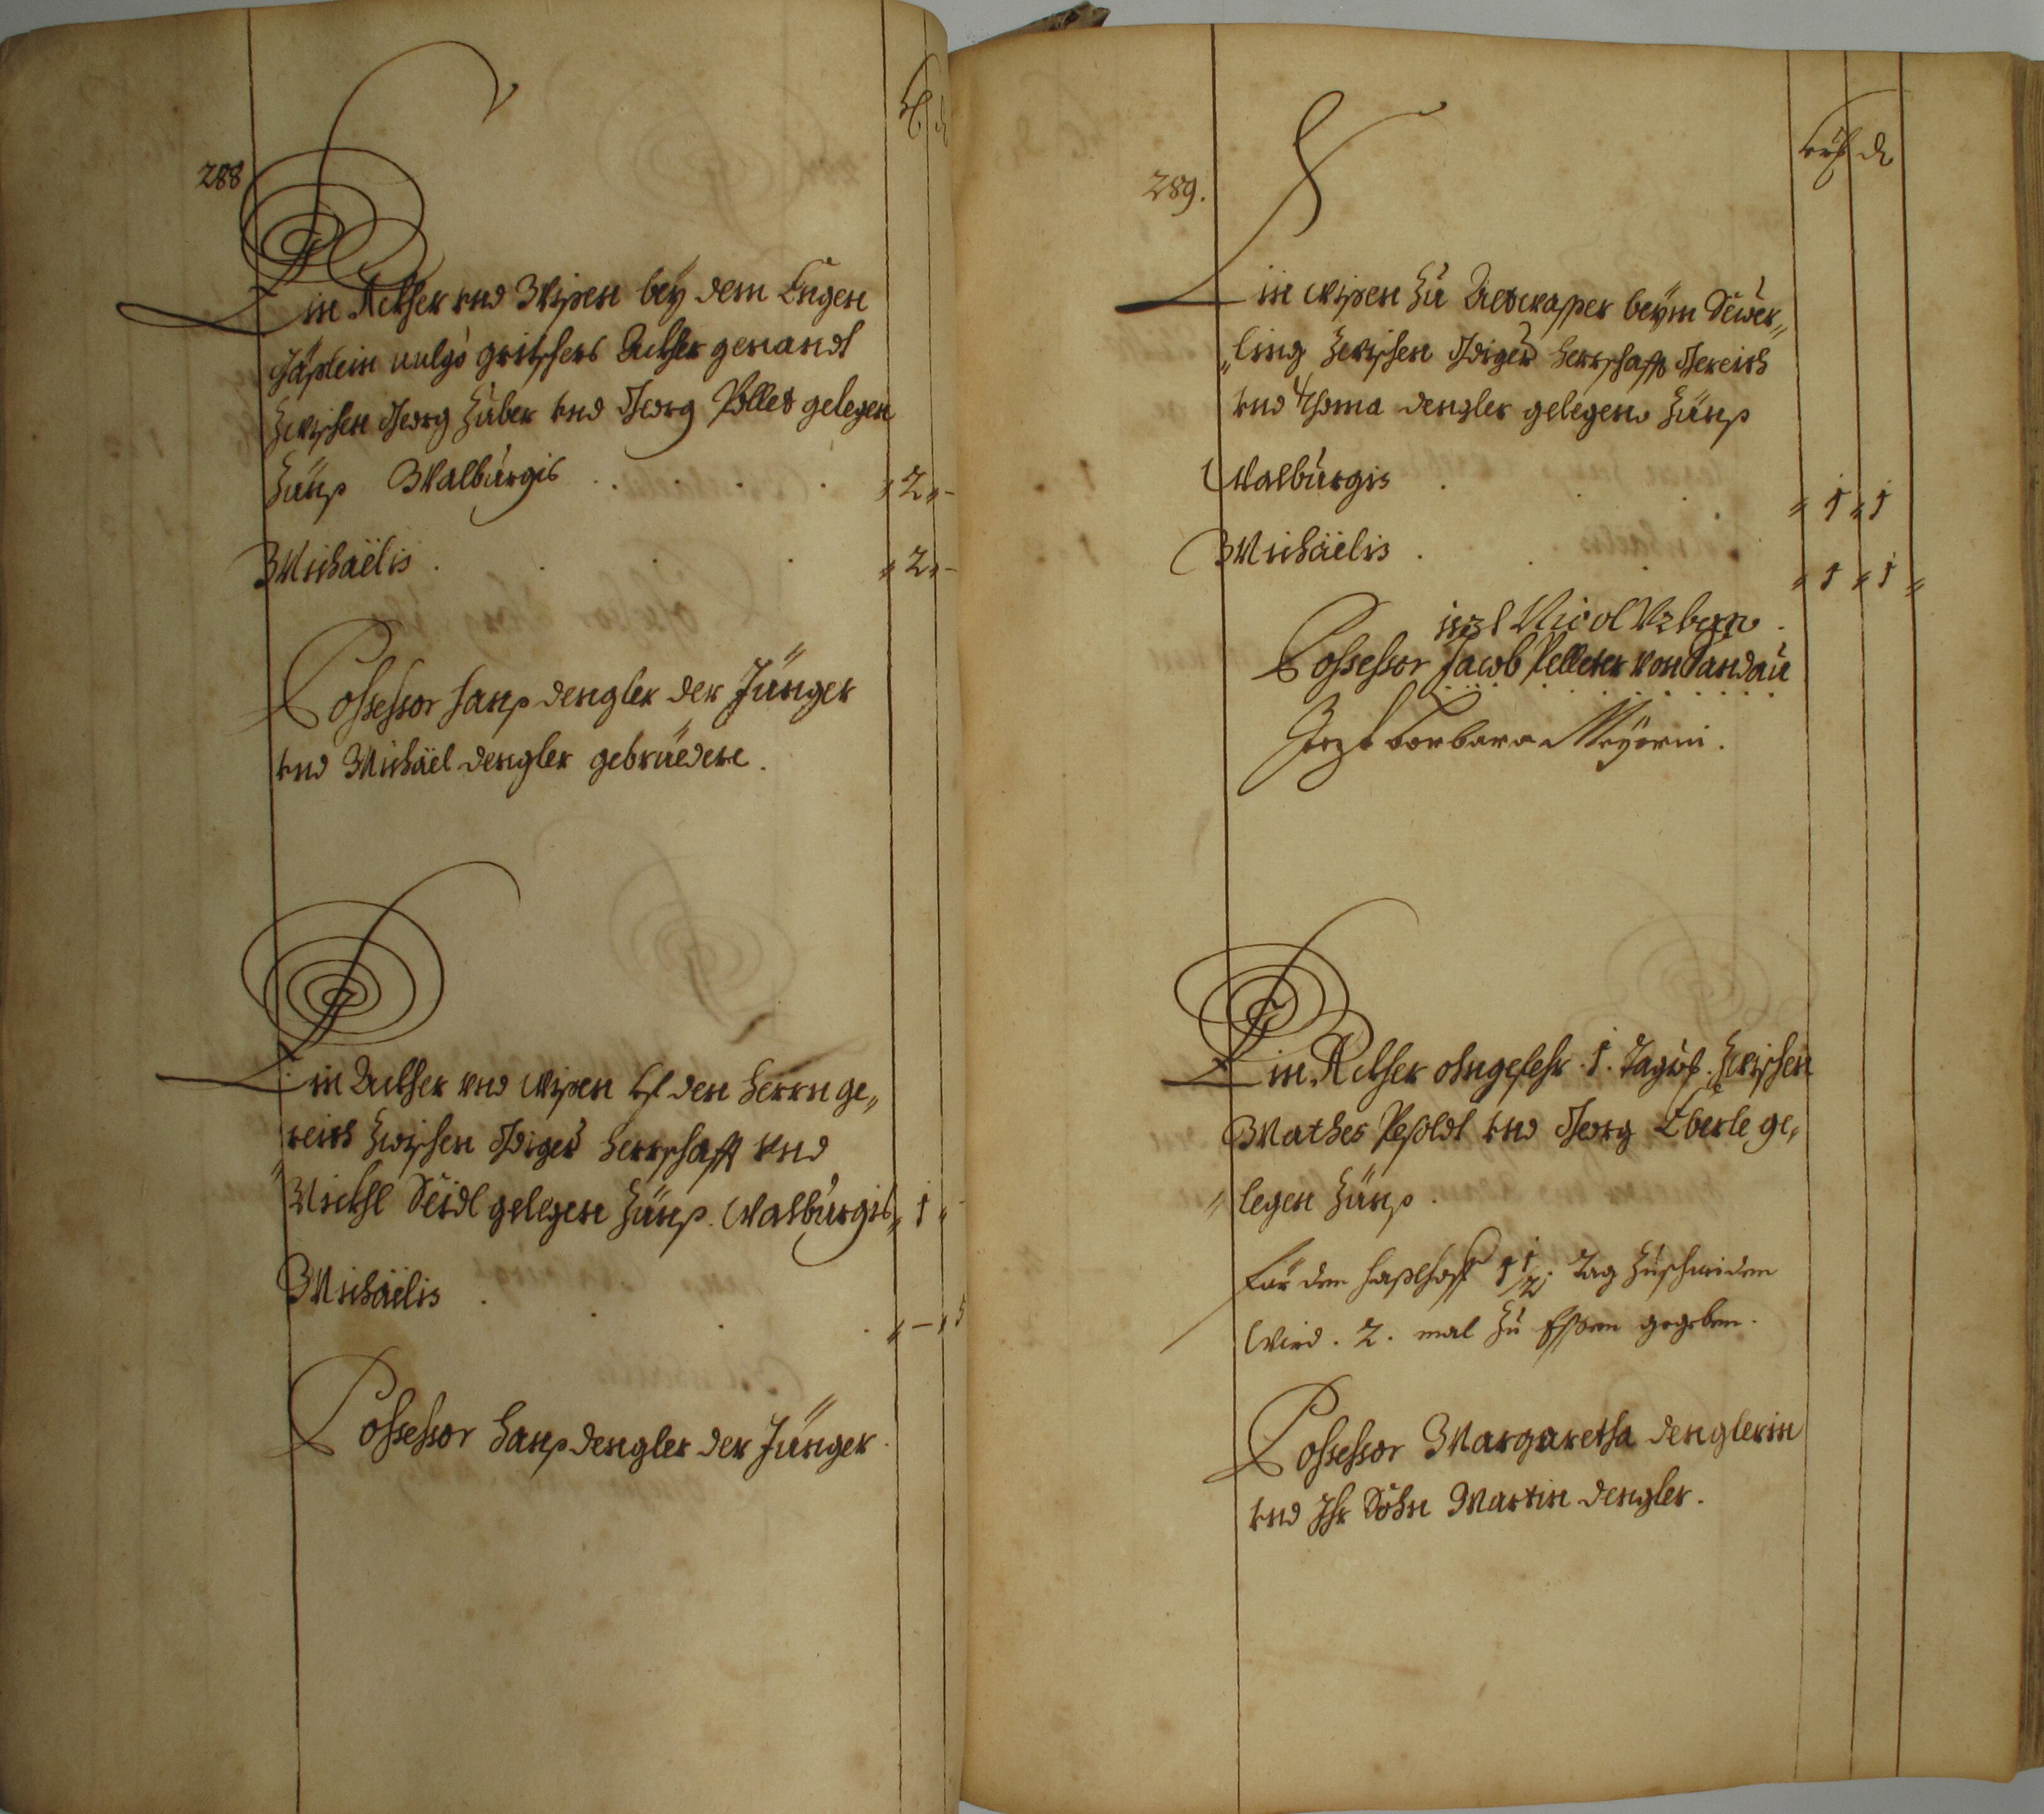 288
Ein Ackher vnd Wisen bey dem Engen
Gäßlein vulgò gritschers Ackher genandt
Zwischen Georg Huber vnd Georg Pölles gelegen
Zünß Walburgis . . . . . 2 „ -
Michaëlis . . . . 2 „ -
Possessor Hanß Dengler der Jünger
vnd Michäel Dengler gebrüedere.
Ein Ackher vnd Wisen vf den Herrn ge„
„reith Zwischen Gdiger Herrschafft vnd
Michl Seidl gelegen Zünß. Walburgis „ 1 „ -
Michäelis . . . . „ - „ 5
Possessor Hanß Dengler der Jünger.
289.
krh d
Ein Wisen Zu Altwasser beÿm Seuer„
„ling Zwischen Gdiger Herrschafft Gereith
vnd Thoma Dengler gelegen Zünß
Walburgis . . . „ 1 „ 1
Michäelis . . . . „ 1 „ 1 „
iezt Nicol Urban.
Possessor Jacob Pelleter von Sandau
Jezt Barbara Meÿerin.
Ein Ackher ohngefehr .1. Tagw. Zwischen
Mathes Pesoldt vnd Georg Eberle ge„
„legen Zünß.
Für den haßlhoff 1 1/2 Tag Zuschneiden
Wird . 2 . mal Zu Essen gegeben.
Possessor Margaretha Denglerin
vnd Ihr Sohn Martin Dengler.